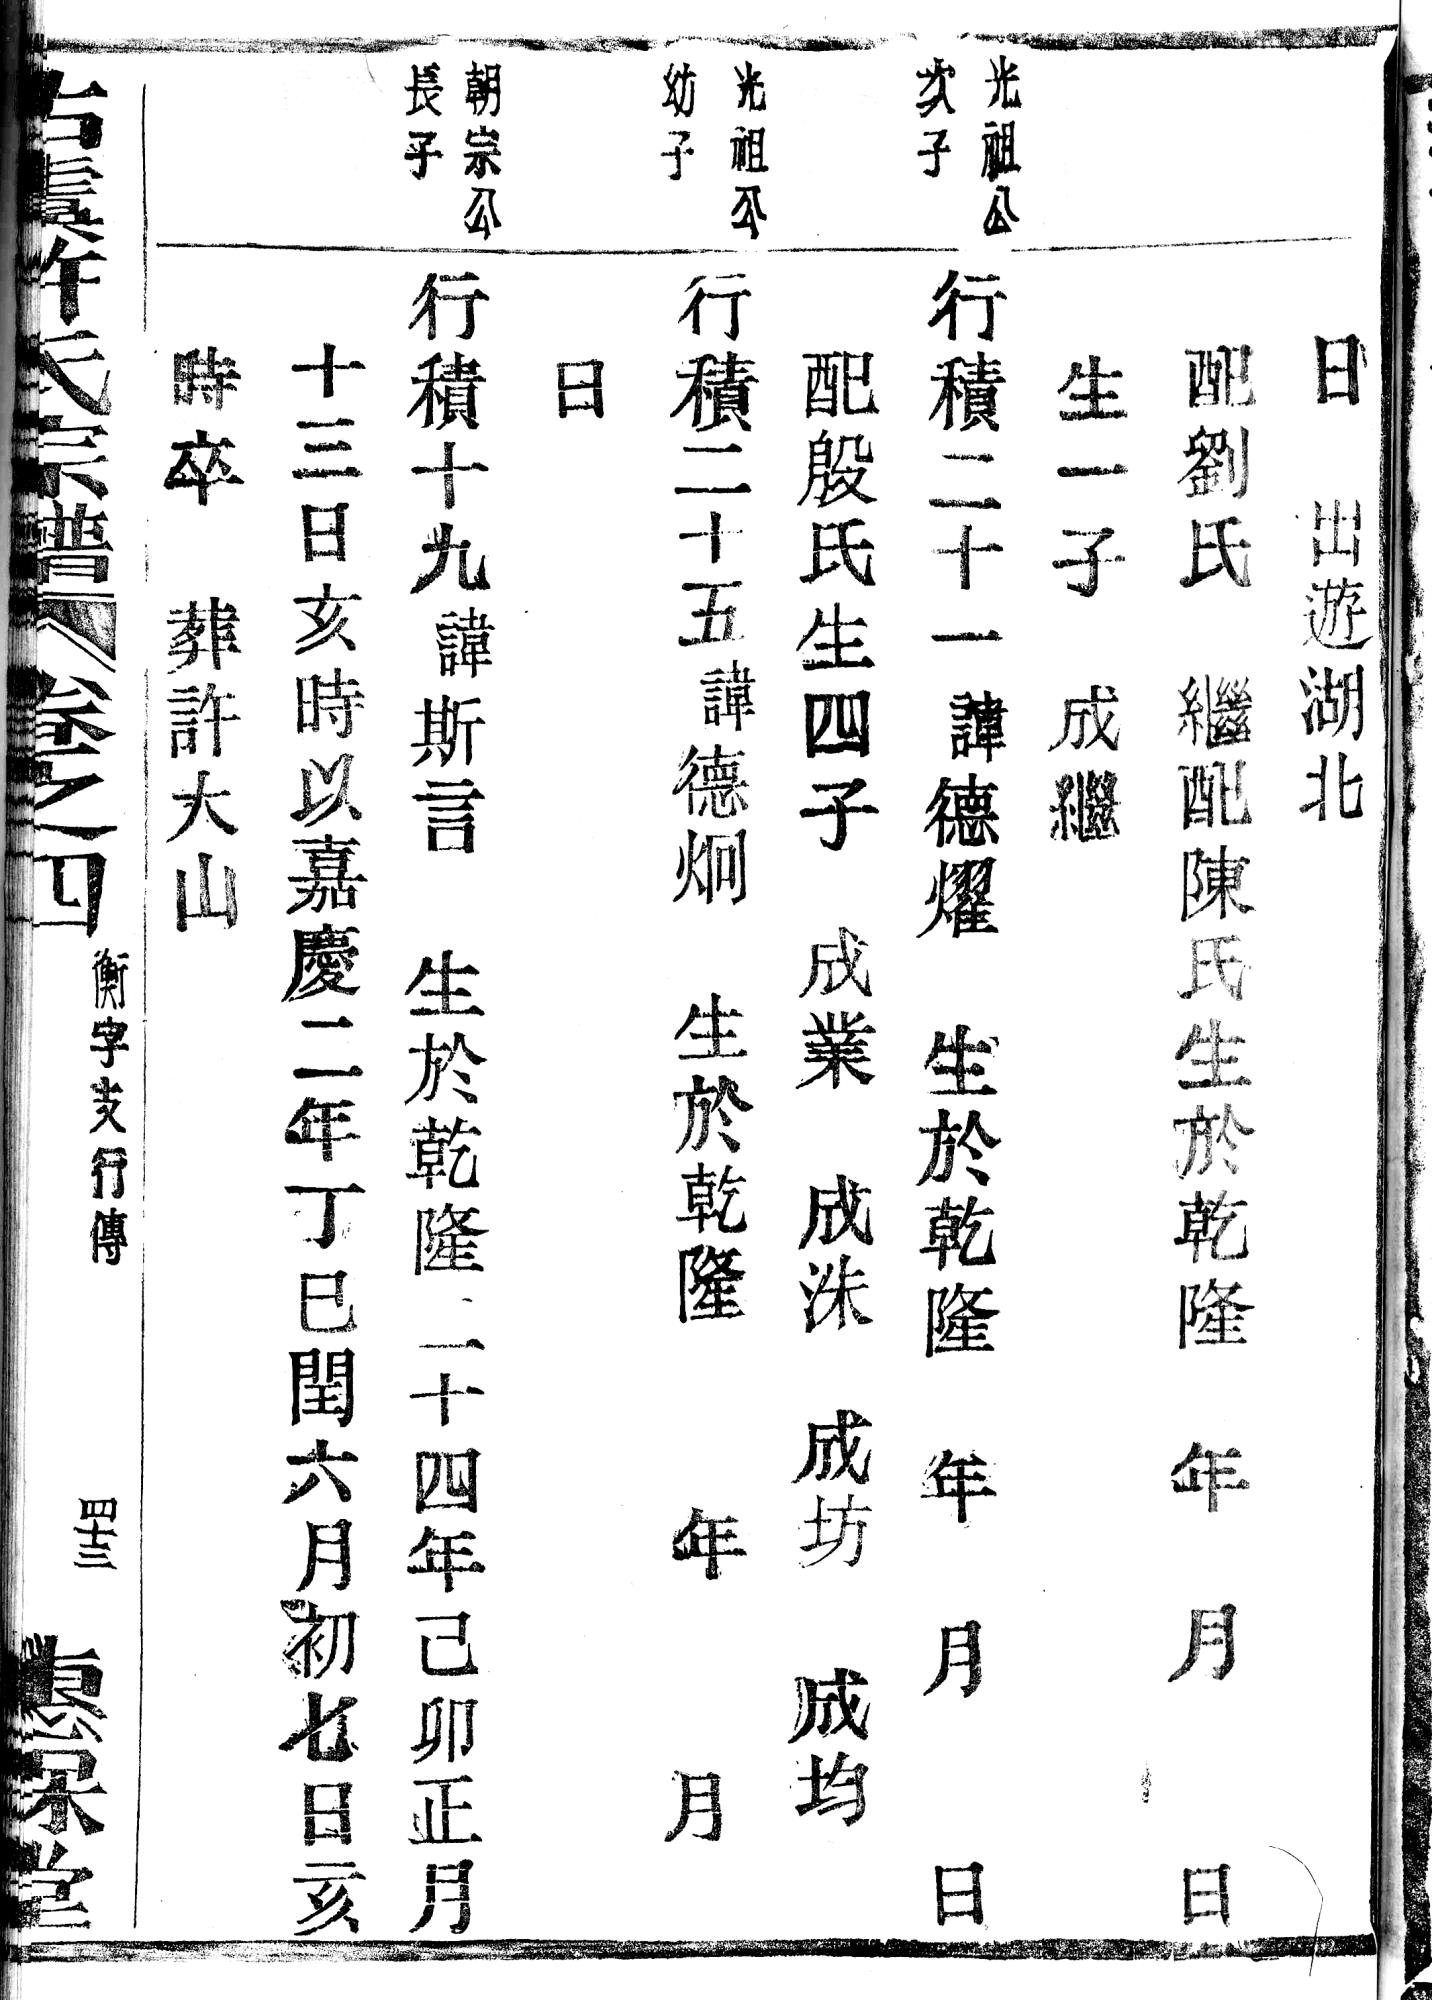 日　出遊湖北
配劉氏　繼配陳氏生於乾隆　年　月　日
生一子　成繼
光祖公
次子
行積二十一諱德燿　生於乾隆　年　月　日
配殷氏生四子　成業　成洙　成坊　成均
光祖公
幼子
行積二十五諱德炯　生於乾隆　年　月
日
朝宗公
長子
行積十九諱斯言　生於乾隆二十四年己卯正月
十三日亥時以嘉慶二年丁巳閏六月初七日亥
時卒　葬許大山
古虞許氏宗譜　卷之四　衡字支行傳　四十三　惠保堂